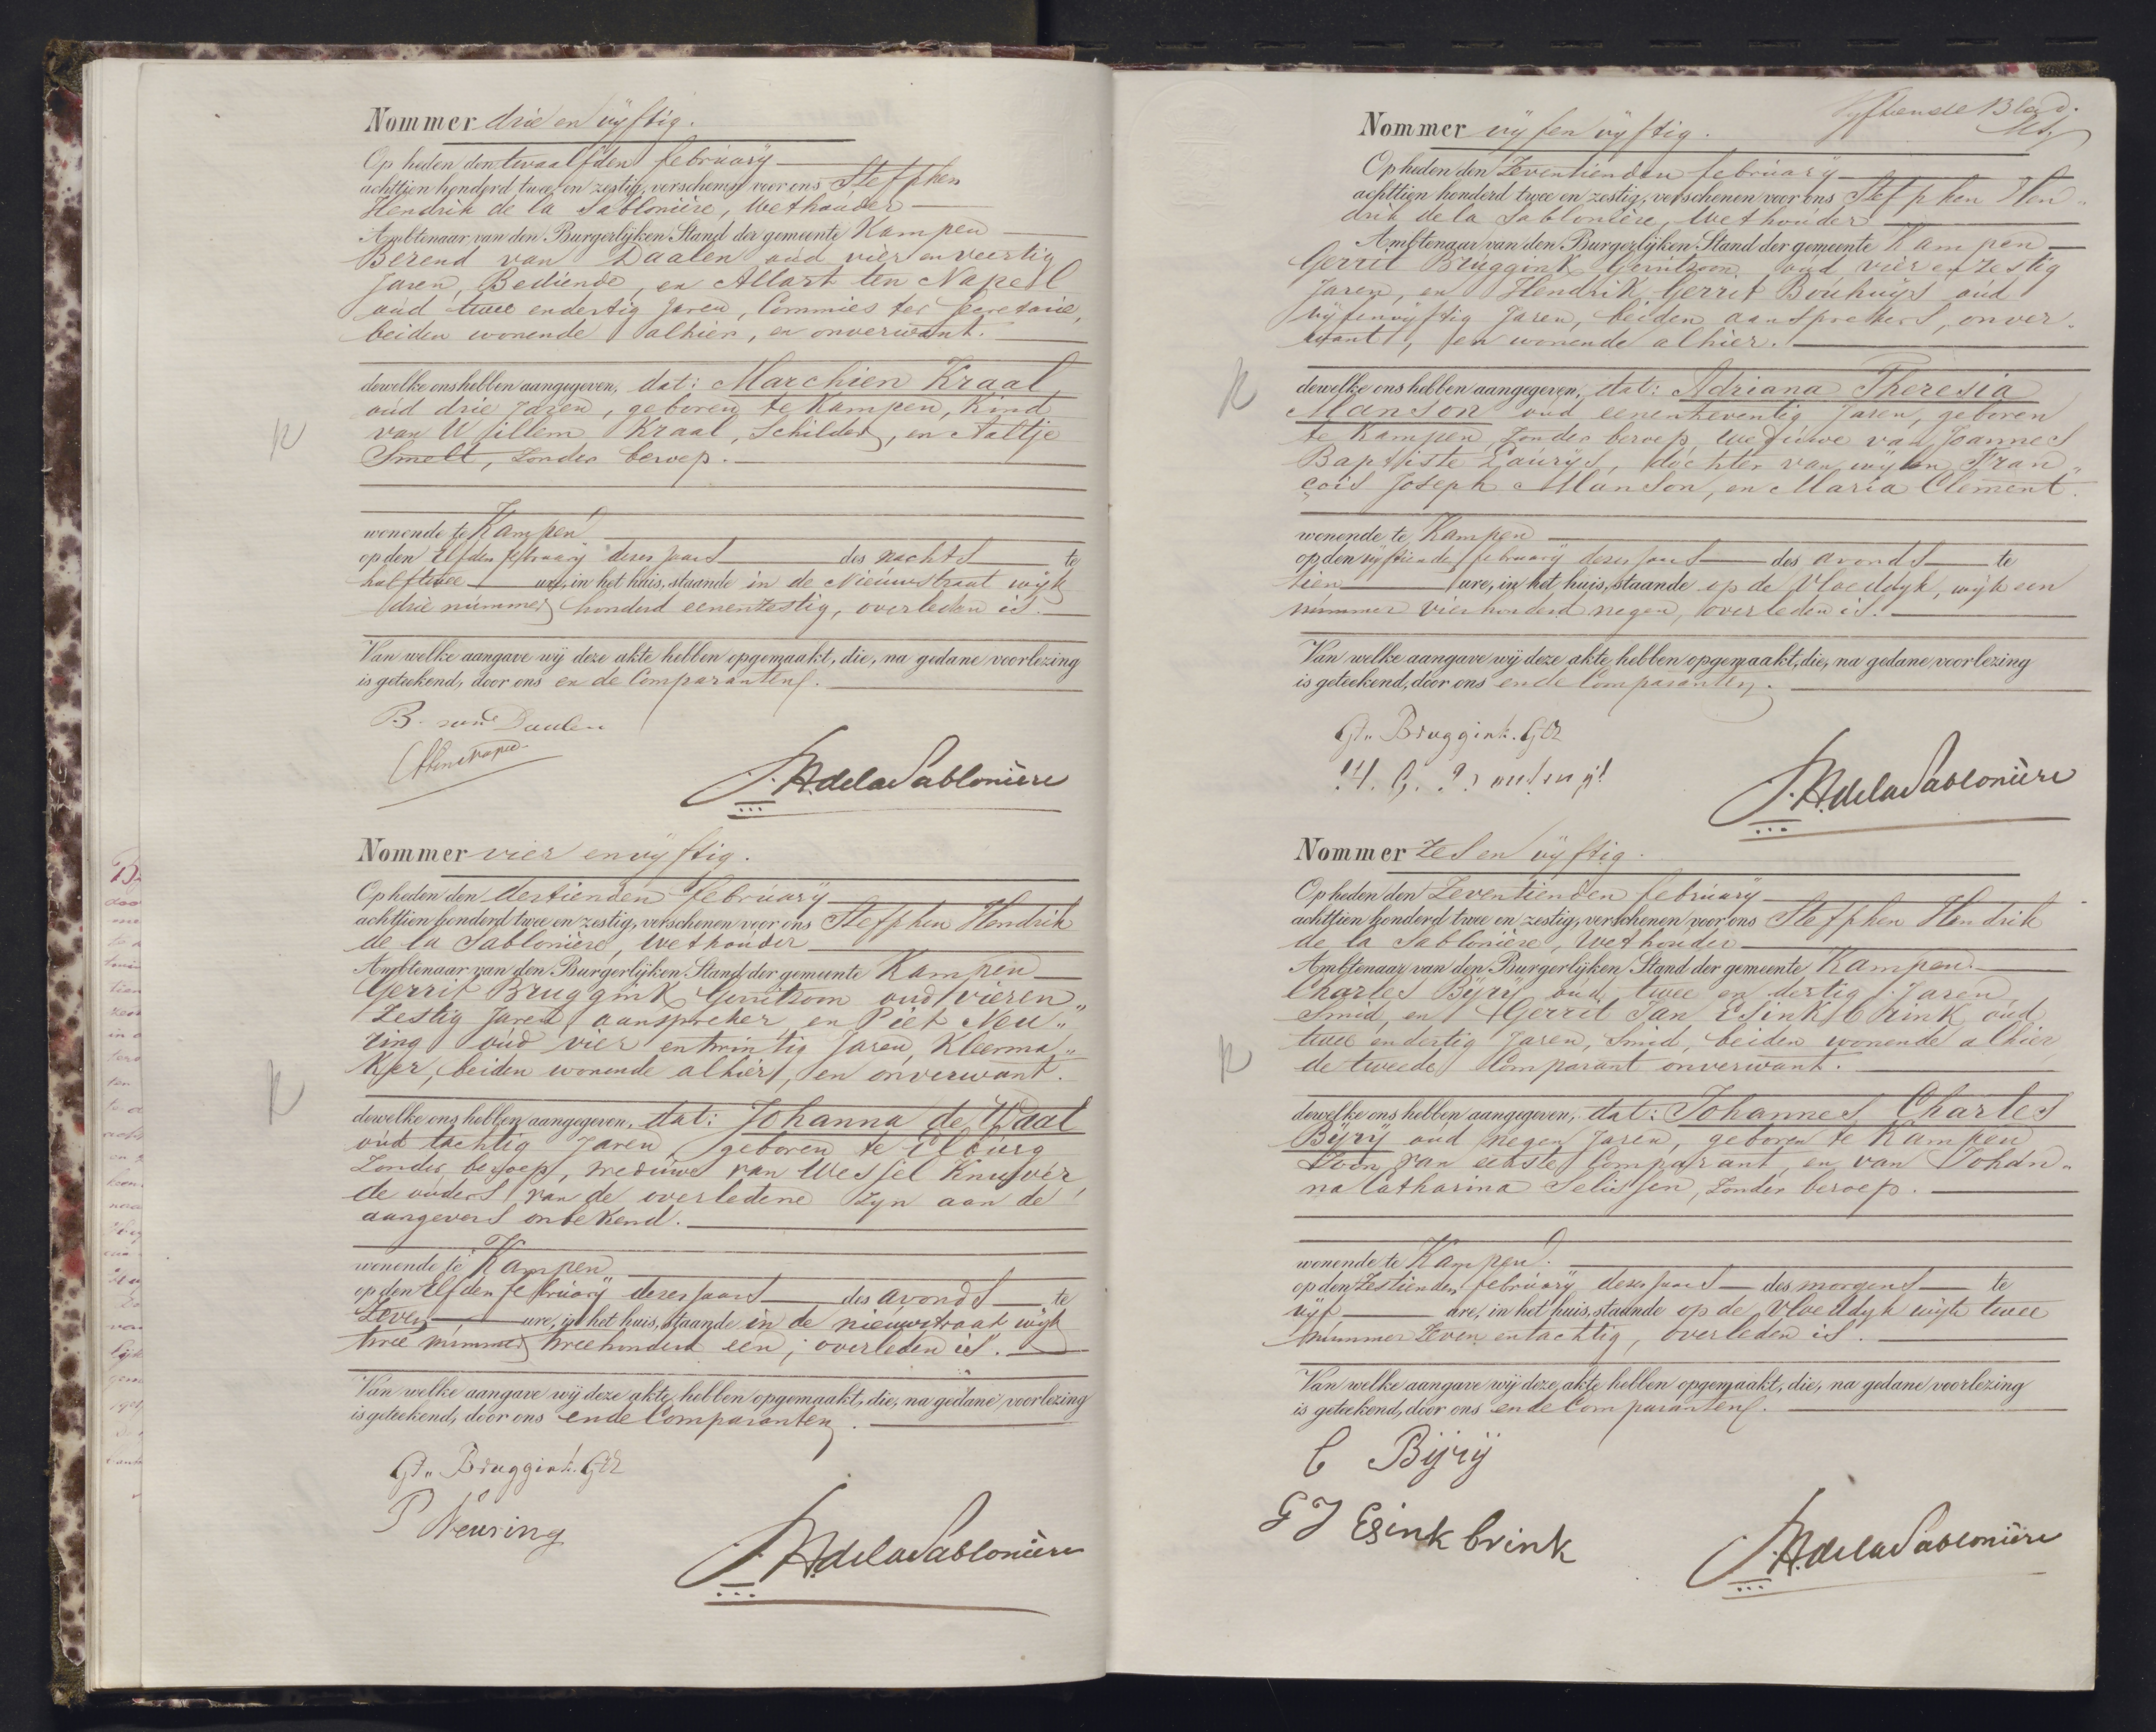 Nommer drie en vÿftig.
Op heden den twaalfden februarÿ
achttien honderd twee en zestig, verschenen voor ons Steffhen
Hendrik de la Sablonière, Wethouder
Ambtenaar van den Burgerlyken Stand der gemeente Kampen
Berend van Daalen oud vier en veertig
Jaren, Bediende, en Allart ten Napel
oud twee endertig Jaren, Commies ter Secretarie,
beiden wonende alhier, en onverwant.
dewelke ons hebben aangegeven, dat: Marchien Kraal
oud drie Jaren, geboren te Kampen, Kind
van Willem Kraal, Schilder, en Aaltje
Smelt, Zonder beroep.
wonende te Kampen
op den Elfden februarÿ dezes Jaars des nachts te
half twee ure, in het huis, staande in de Nieuwstraat wÿk
drie nummer honderd eenenzestig, overleden is.
Van welke aangave wij deze akte hebben opgemaakt, die, na gedane voorlezing
is geteekend, door ons en de Comparanten.
B. van Daalen
A ten Napel
S.H. de la Sablonière
Nommer vier en vÿftig.
Op heden den dertienden februarÿ
achttien honderd twee en zestig, verschenen voor ons Steffhen Hendrik
de la Sablonière, Wethouder
Ambtenaar van den Burgerlyken Stand der gemeente Kampen
Gerrit Bruggink Gerritzoon oud vieren„
Zestig Jaren, aanspreker en Piet Neu„
zing oud vier entwintig Jaren, Kleerma„
Ker, beiden wonende alhier, en onverwant.
dewelke ons hebben aangegeven, dat: Johanna de Waal
oud tachtig Jaren, geboren te Elburg
Zonder beroep, weduwe van Wessel Knufver,
de ouders van de overledene zyn aan de
aangevers onbekend.
wonende te Kampen
op den Elfden februarÿ dezes Jaars des avonds te
Zeven ure, in het huis, staande in de nieuwstraat wÿk
twee nummer tweehonderd een, overleden is.
Van welke aangave wij deze akte hebben opgemaakt, die, na gedane voorlezing
is geteekend, door ons en de Comparanten.
Gt. Bruggink. GZ
P Neusing
S.H. de la Sablonière
Vÿftiende Blad.
Nommer vÿf en vÿftig.
Op heden den Zeventienden februarÿ
achttien honderd twee en zestig, verschenen voor ons Steffhen Hen„
drik de la Sablonière, Wethouder
Ambtenaar van den Burgerlyken Stand der gemeente Kampen
Gerrit Bruggink Gerritzoon, oud vier en zestig
Jaren, en Hendrik Gerrit Bouhuijs oud
vÿfenvÿftig Jaren, beiden aansprekers, onver„
want, en wonende alhier.
dewelke ons hebben aangegeven, dat: Adriana Theresia
Manson oud eenenzeventig Jaren, geboren
te Kampen, Zonder beroep, weduwe van Joannes
Baptiste Laurÿs, dochter van wÿlen Fran„
çois Joseph Manson, en Maria Clement.
wonende te Kampen
op den vÿftiende februarÿ dezes Jaars des avonds te
tien ure, in het huis, staande op de Vloeddyk, wÿk een
nummer vierhonderd negen, overleden is.
Van welke aangave wij deze akte hebben opgemaakt, die, na gedane voorlezing
is geteekend, door ons en de Comparanten.
Gt. Bruggink. GZ
H. G. Bouhuijs
S.H. de la Sablonière
Nommer Zes en vÿftig.
Op heden den Zeventienden februarÿ
achttien honderd twee en zestig, verschenen voor ons Steffhen Hendrik
de la Sablonière, Wethouder
Ambtenaar van den Burgerlyken Stand der gemeente Kampen
Charles Bÿrÿ oud twee en dertig Jaren,
Smid, en Gerrit Jan Esinkbrink, oud
twee endertig Jaren, Smid, beiden wonende alhier
de tweede Comparant onverwant.
dewelke ons hebben aangegeven, dat: Johannes Charles
Bÿrÿ oud negen Jaren, geboren te Kampen
Zoon van eerste Comparant, en van Johan„
na Catharina Seliesen, Zonder beroep.
wonende te Kampen.
op den Zestienden februarÿ dezes Jaars des morgens te
vÿf ure, in het huis, staande op de Vloeddyk wÿk twee
nummer Zeven entachtig, overleden is.
Van welke aangave wij deze akte hebben opgemaakt, die, na gedane voorlezing
is geteekend, door ons en de Comparanten.
C Bijrij
G J Esinkbrink
S.H. de la Sablonière